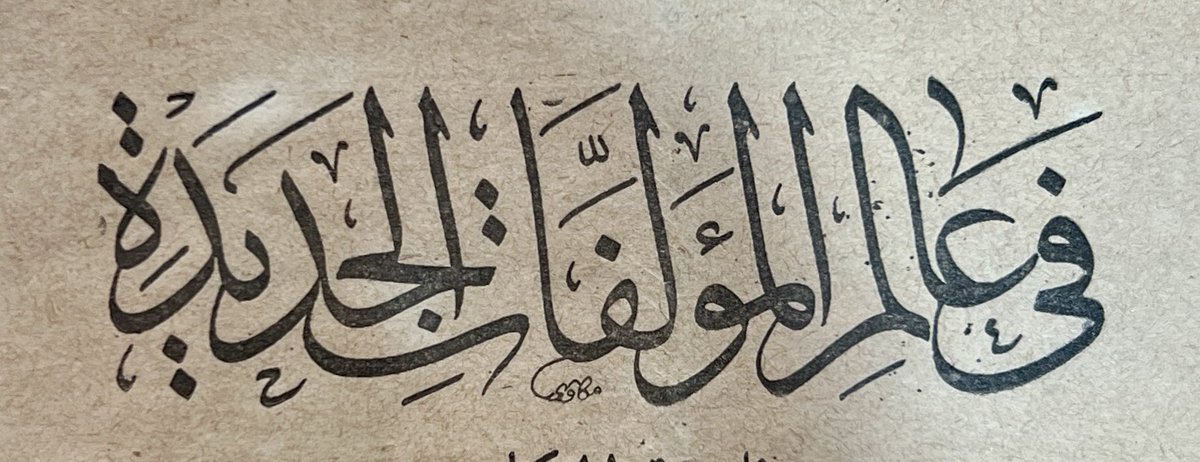 فى عَالَمِ المُؤَلَّفَاتِ الجَدِيدَةِ